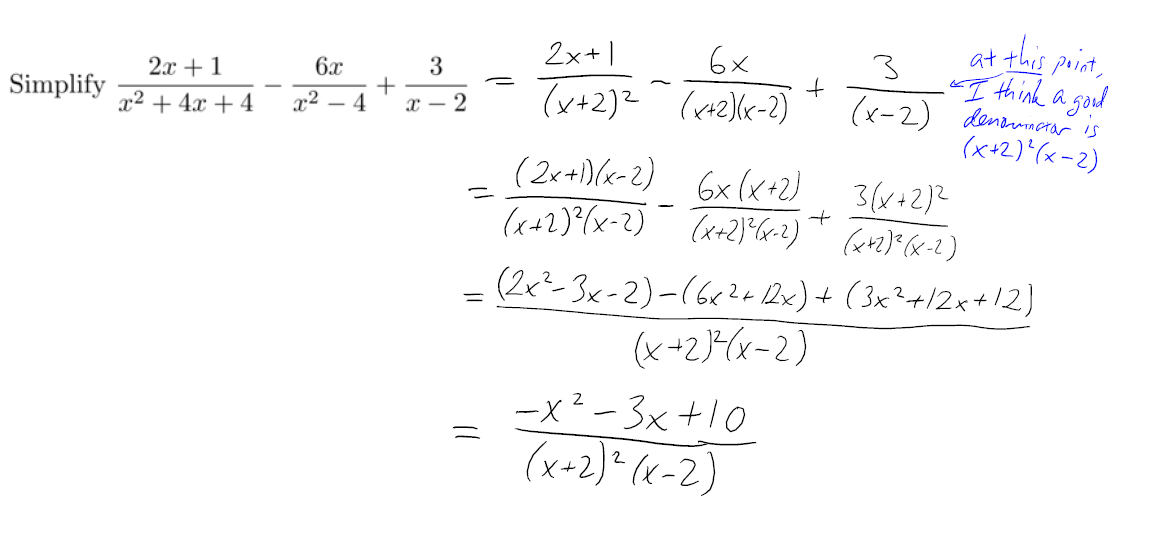 Simplify (2x + 1)/(x² + 4x + 4) − 6x/(x² − 4) + 3/(x − 2) = (2x+1)/(x+2)² − 6x/((x+2)(x−2)) + 3/(x−2)
at this point,
I think a good
denominator is
(x+2)²(x−2)
= (2x+1)(x−2)/((x+2)²(x−2)) − 6x(x+2)/((x+2)²(x−2)) + 3(x+2)²/((x+2)²(x−2))
= ((2x²−3x−2)−(6x²+12x)+(3x²+12x+12))/((x+2)²(x−2))
= (−x²−3x+10)/((x+2)²(x−2))